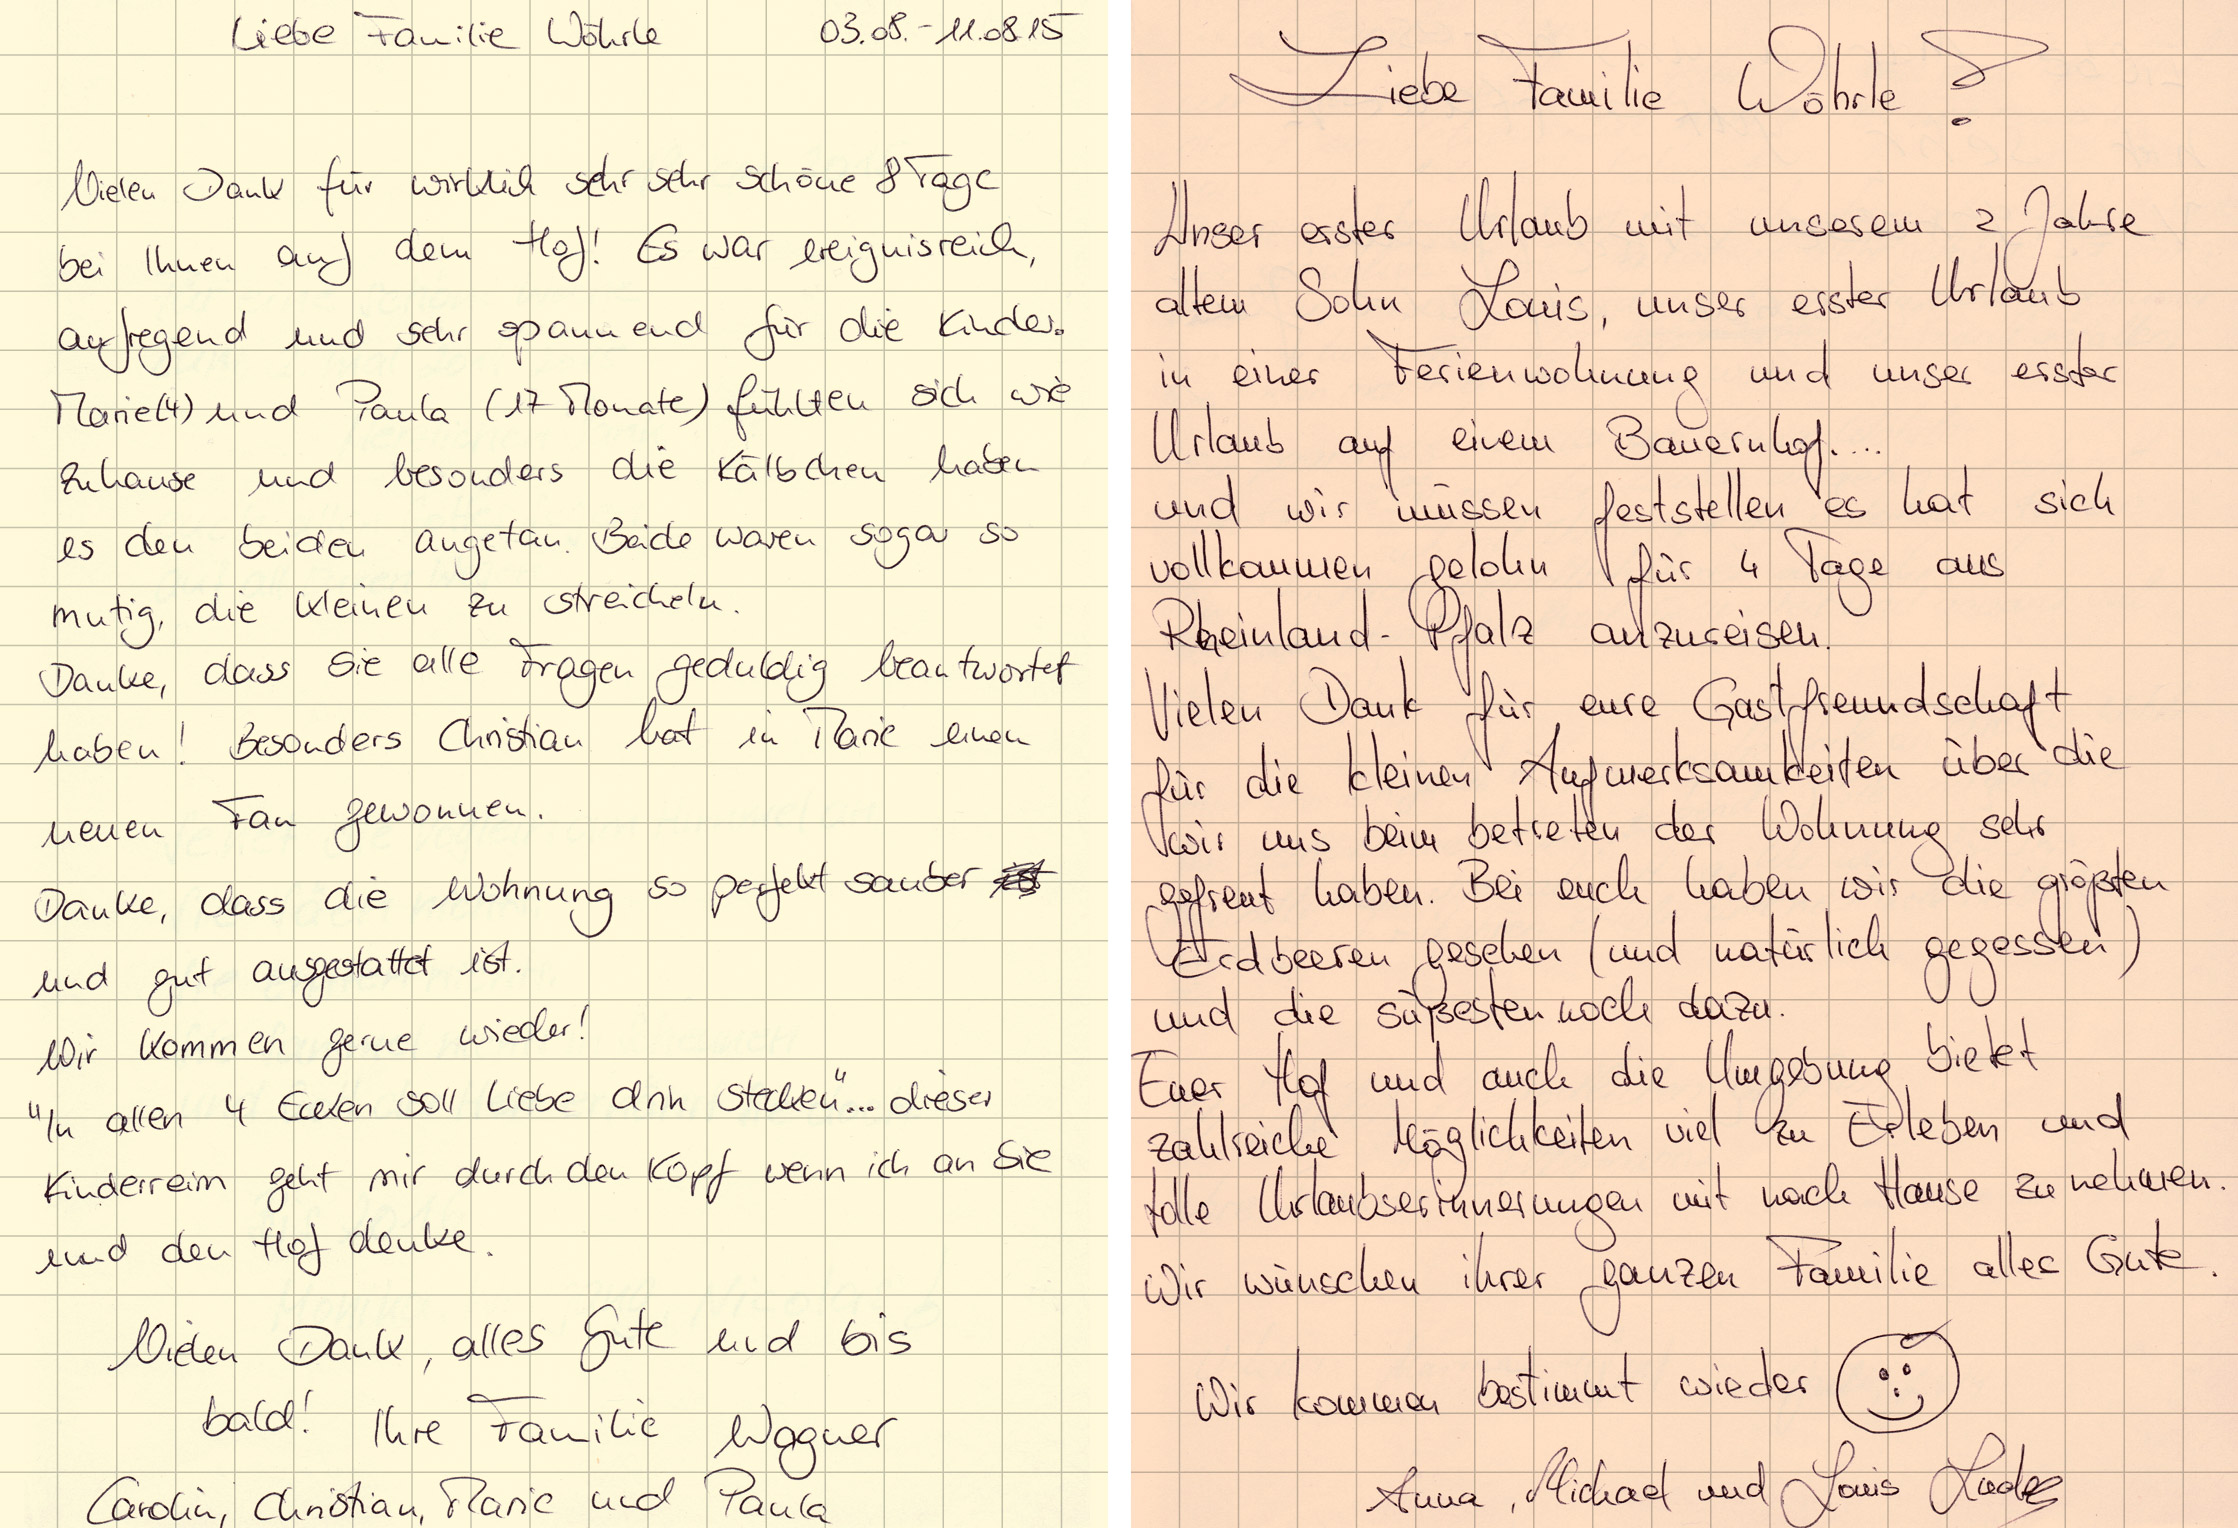 Liebe Familie Wöhrle 03.08.-11.08.15
Vielen Dank für wirklich sehr sehr schöne 8 Tage
bei Ihnen auf dem Hof! Es war ereignisreich,
aufregend und sehr spannend für die Kinder.
Marie(4) und Paula (17 Monate) fühlten sich wie
zuhause und besonders die Kälbchen haben
es den beiden angetan. Beide waren sogar so
mutig, die kleinen zu streicheln.
Danke, dass Sie alle Fragen geduldig beantwortet
haben! Besonders Christian hat in Marie einen
neuen Fan gewonnen.
Danke, dass die Wohnung so perfekt sauber
und gut ausgestattet ist.
Wir kommen gerne wieder!
"In allen 4 Ecken soll Liebe drin stecken"... dieser
Kinderreim geht mir durch den Kopf wenn ich an Sie
und den Hof denke.
Vielen Dank, alles Gute und bis
bald! Ihre Familie Wagner
Carolin, Christian, Marie und Paula
Liebe Familie Wöhrle !
Unser erster Urlaub mit unserem 2 Jahre
altem Sohn Louis, unser erster Urlaub
in einer Ferienwohnung und unser erster
Urlaub auf einem Bauernhof....
und wir müssen feststellen es hat sich
vollkommen gelohn für 4 Tage aus
Rheinland-Pfalz anzureisen.
Vielen Dank für eure Gastfreundschaft
für die kleinen Aufmerksamkeiten über die
wir uns beim betreten der Wohnung sehr
gefreut haben. Bei euch haben wir die größten
Erdbeeren gesehen (und natürlich gegessen)
und die süßesten noch dazu.
Euer Hof und auch die Umgebung bietet
zahlreiche Möglichkeiten viel zu Erleben und
tolle Urlaubserinnerungen mit nach Hause zu nehmen.
Wir wünschen ihrer ganzen Familie alles Gute.
Wir kommen bestimmt wieder
Anna, Michael und Louis